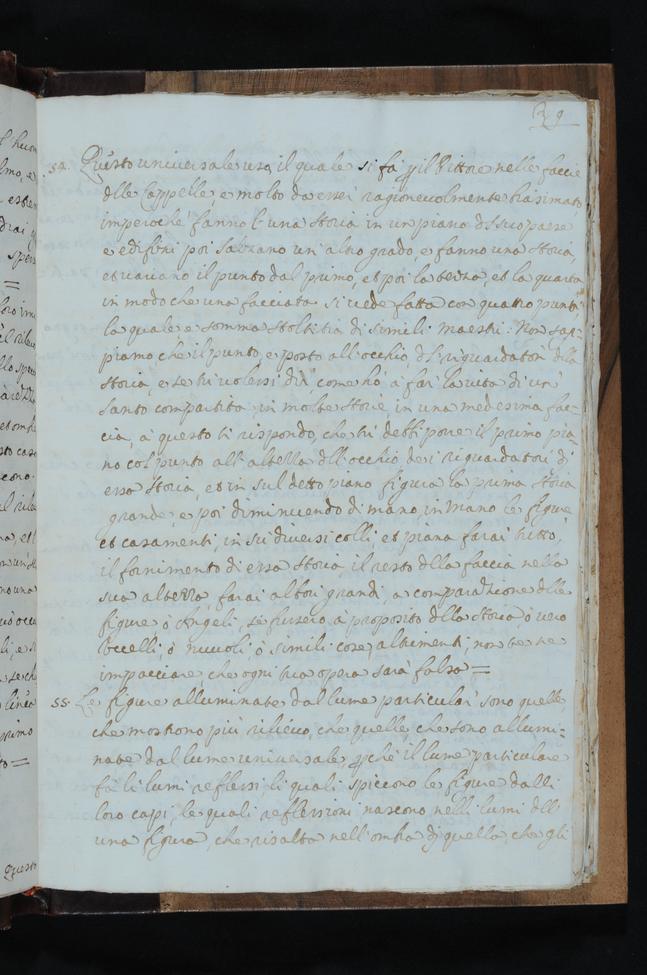 39
54. Questo universale uso, il quale si fà p il Pittore nelle faccie
delle Cappelle, e molto da esser ragionevolmente biasimato,
imperoche fanno l'una storia in un piano d suo paese
e edifitii poi s'alzano un altro grado, e fanno una storia,
et variano il punto dal primo, et poi la terza, et la quarta
in modo che una facciata si vede fatta con quattro punti
la quale e somma stoltitia di simili maestri. Non sap-
piamo che il punto, e posto all'occhio, d riguardatori dlla
storia, e se tu volessi dir come hò à far la vita di un
santo compartita in molte storie, in una medesima fac-
cia, à questo ti rispondo, che tu debbi porre il primo pia-
no col punto all'altezza dll'occhio dei riguardatori di
essa storia, et in sul detto piano figura la prima storia
grande, e poi diminuendo di mano, in mano le figure
et casamenti, in su diversi colli et piana farai tutto,
il fornimento di essa storia, il resto dlla faccia nella
sua altezza farai alberi grandi, a comparazione dlle
figure ò Angeli, se fussero à proposito dlla storia ò vero
Uccelli, ò nuvoli, ò simili cose, altrimenti non te ne
impacciare, che ogni tua opera sarà falsa =
55. Le figure alluminate dal lume particular' sono quelle
che mostrono più rilievo, che quelle, che sono allumi-
nate dal lume universale, pchè il lume particulare
fà li lumi reflessi, li quali spiccono le figure dalli
loro capi, le quali reflessioni nascono nelli lumi dll'
una figura, che risalta nell'ombra di quella, che gli